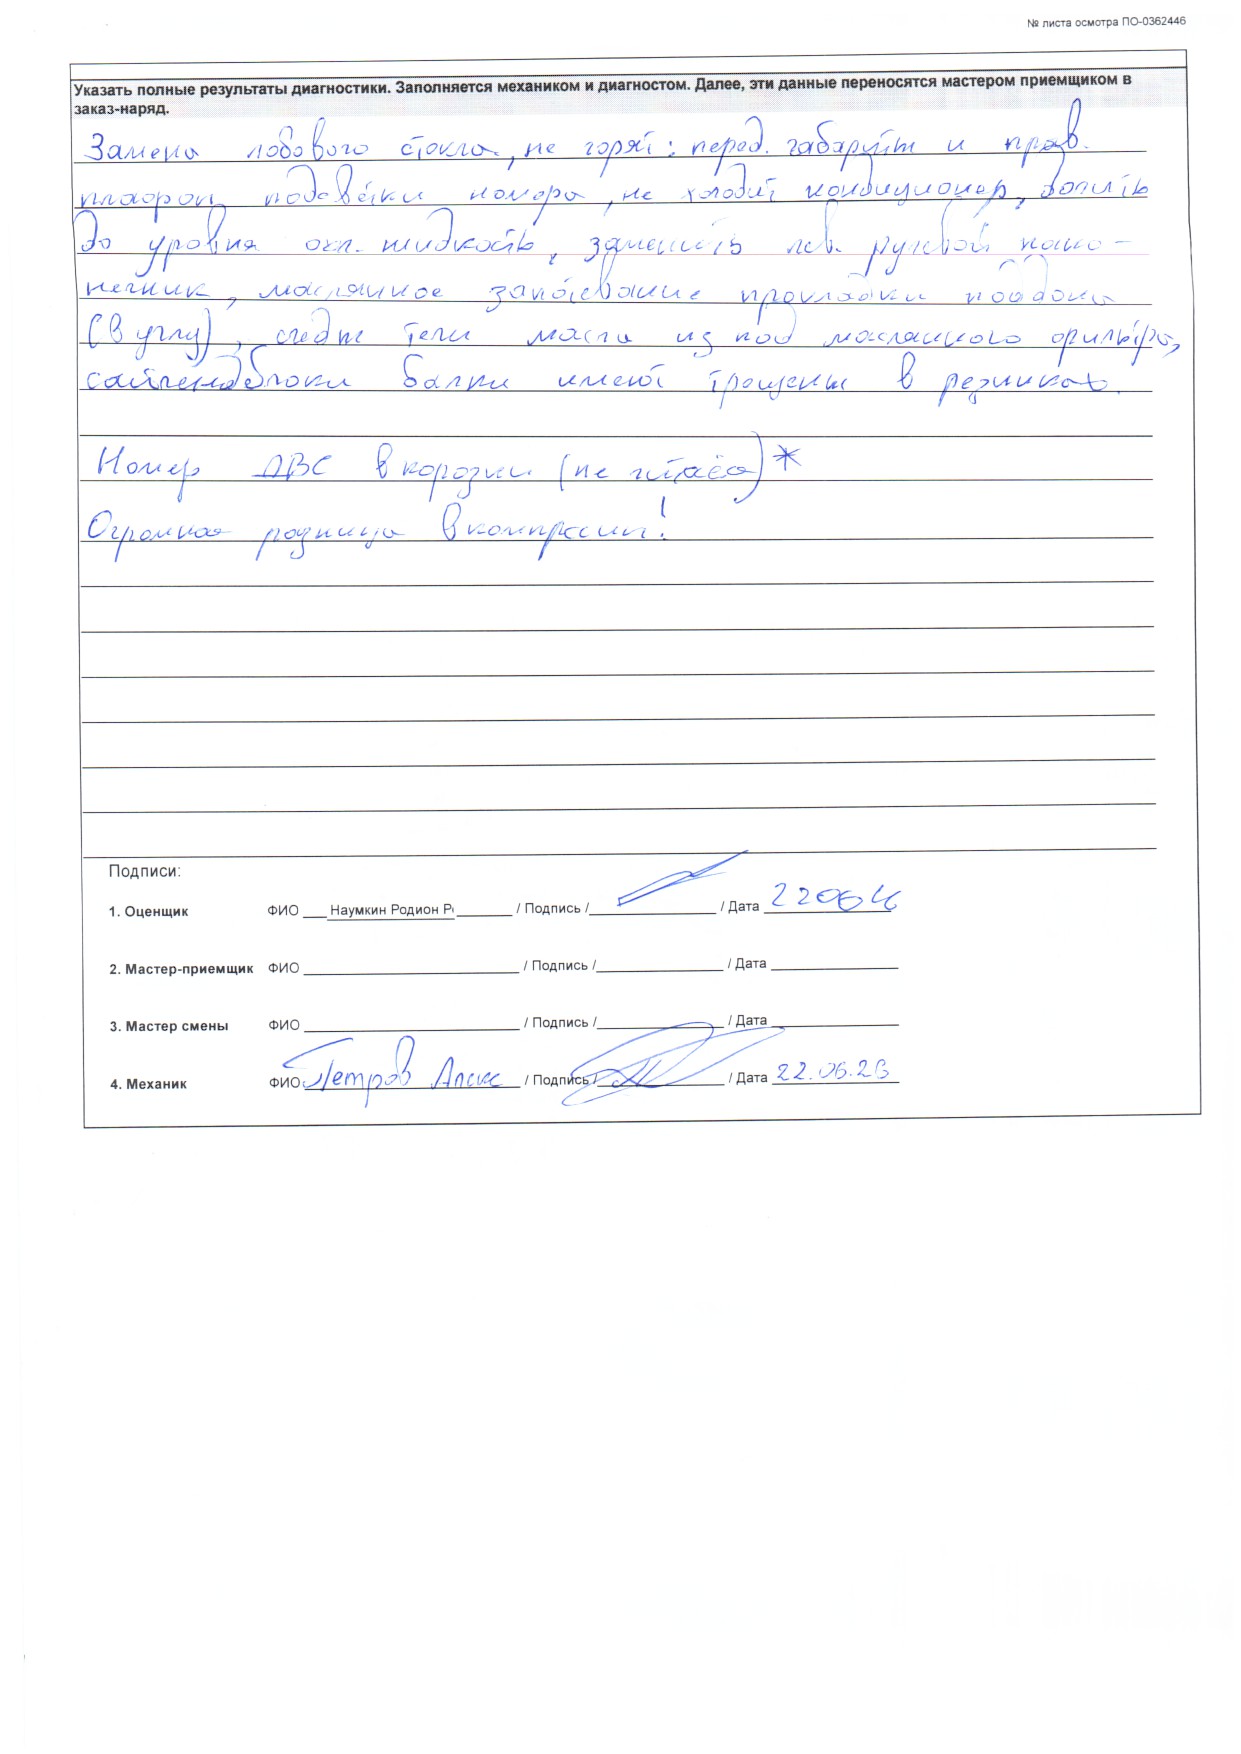 № листа осмотра ПО-0362446
Указать полные результаты диагностики. Заполняется механиком и диагностом. Далее, эти данные переносятся мастером приемщиком в
заказ-наряд.
Замена лобового стекла, не горят: перед. габариты и прав.
плафон подсветки номера, не холодит кондиционер, долить
до уровня охл. жидкость, заменить лев. рулевой нако-
нечник, маслянное запотевание прокладки поддона
(в углу), следы течи масла из под маслянного фильтра,
сайленблоки балки имеют трещены в резинках.
Номер ДВС в корозии (не читаем) *
Огромная разница в компрессии!
Подписи:
1. Оценщик ФИО Наумкин Родион Р / Подпись / / Дата
2. Мастер-приемщик ФИО / Подпись / / Дата
3. Мастер смены ФИО / Подпись / / Дата
4. Механик ФИО Петров Алекс / Подпись / / Дата 22.06.23